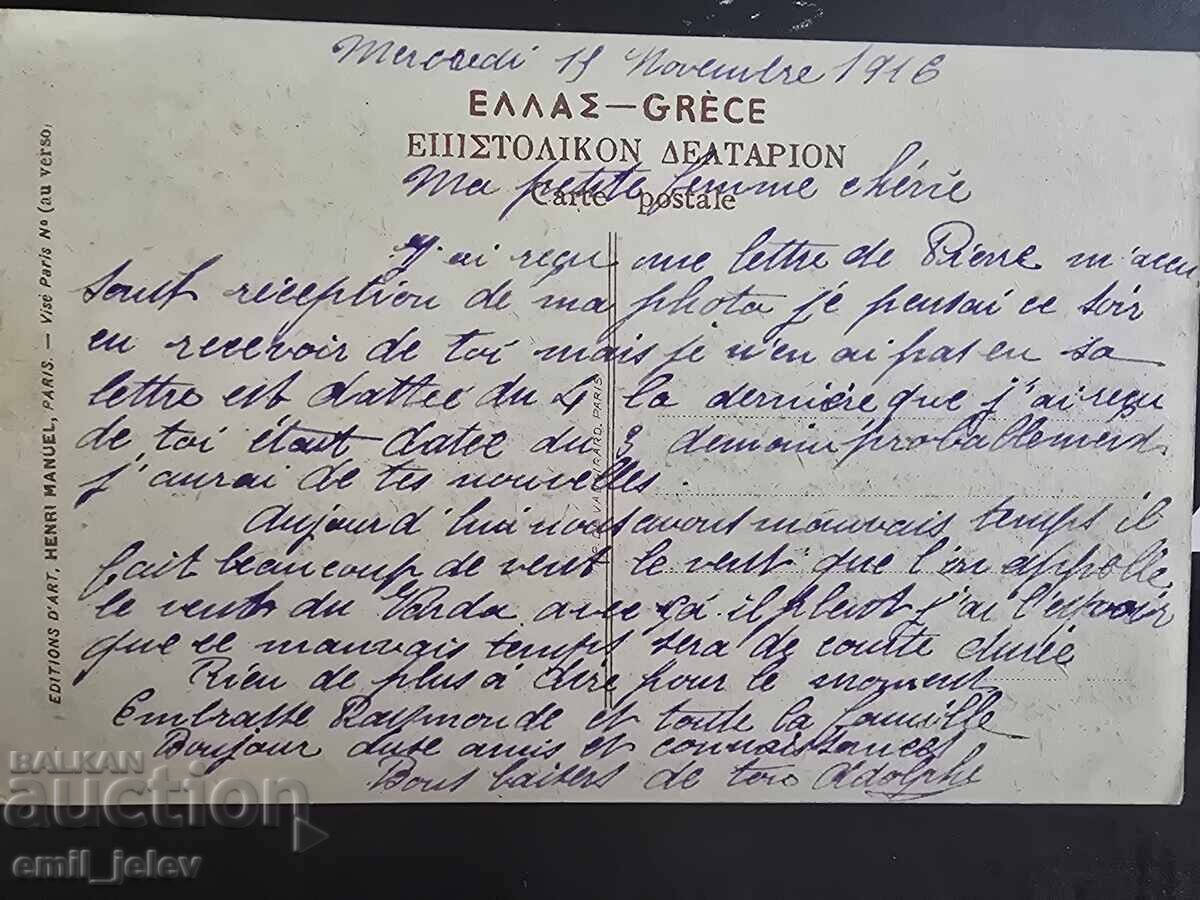 Mercredi 15 Novembre 1916
ΕΛΛΑΣ — GRÈCE
ΕΠΙΣΤΟΛΙΚΟΝ ΔΕΛΤΑΡΙΟΝ
Carte postale
Ma petite femme chérie
J'ai reçu une lettre de Pierre m'accu
sant réception de ma photo je pensai ce soir
en recevoir de toi mais je n'en ai pas eu sa
lettre est dattée du 4 la dernière que j'ai reçu
de toi étant datée du 3 demain probablement
j'aurai de tes nouvelles.
Aujourd'hui nous avons mauvais temps il
fait beaucoup de vent le vent que l'on appelle
le vent du Varda avec ça il pleut j'ai l'espoir
que ce mauvais temps sera de courte durée
Rien de plus à dire pour le moment
Embrasse Raymonde et toute la famille
Bonjour amis et connaissances
Bons baisers de ton Adolphe
EDITIONS D'ART, HENRI MANUEL, PARIS. — Visé Paris No (au verso)
VAUGIRARD, PARIS
BALKAN
auction
emil_jelev